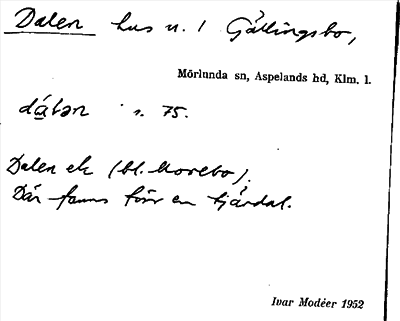 Dalen hus u. 1 Gällingsbo,
Mörlunda sn, Aspelands hd, Klm. l.
dá̱lən s. 75.
Dalen ek (bl. Morebo).
Där fanns förr en tjärdal.
Ivar Modéer 1952